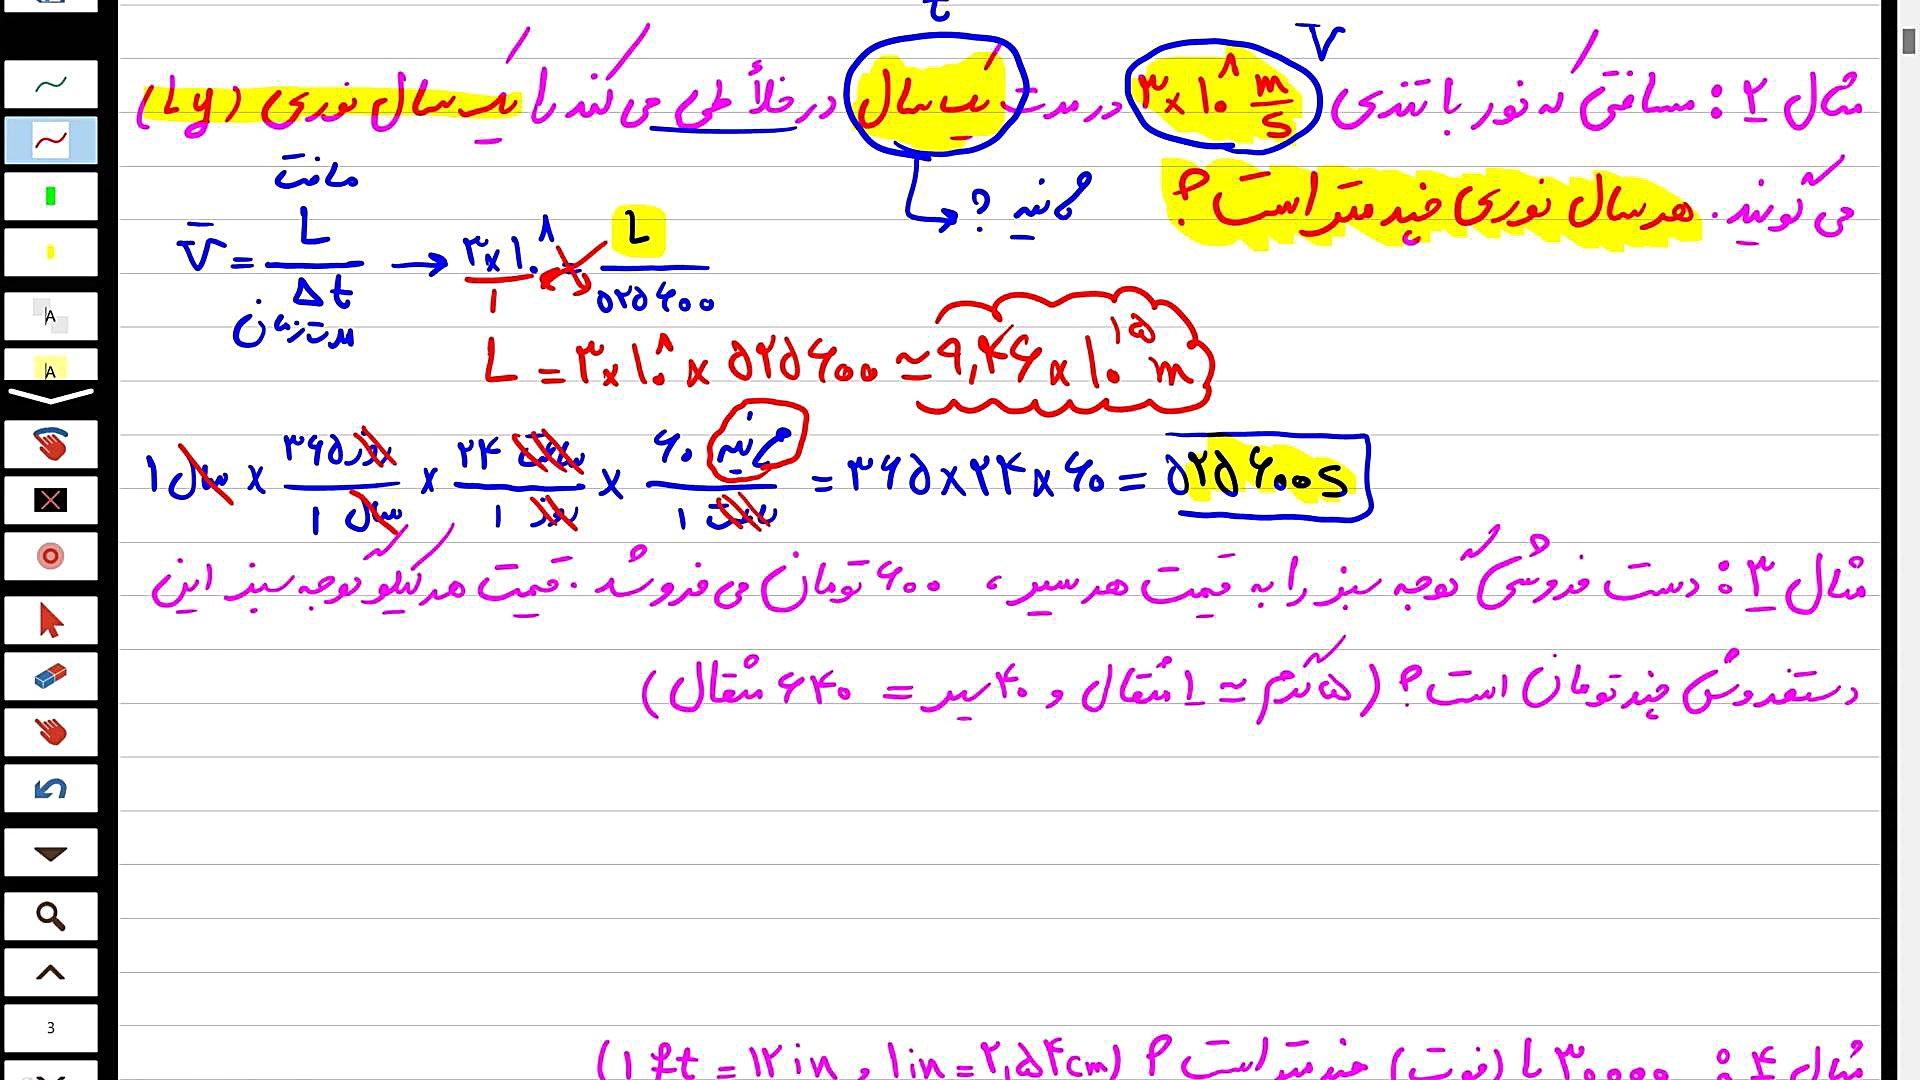 t
V
مثال ۲ : مسافتی که نور با تندی ۳×۱۰^۸ m/s در مدت یک سال در خلأ طی می کند را یک سال نوری (Ly)
می گویند. هر سال نوری چند متر است ؟
ثانیه ?
V̄ = L مسافت / Δt مدت زمان → ۳×۱۰^۸ / ۱ = L / ۵۲۵۶۰۰
L = ۳×۱۰^۸ × ۵۲۵۶۰۰ ≃ ۹,۴۶ × ۱۰^۱۵ m
۱ سال × ۳۶۵ روز / ۱ سال × ۲۴ ساعت / ۱ روز × ۶۰ ثانیه / ۱ ساعت = ۳۶۵×۲۴×۶۰ = ۵۲۵۶۰۰ s
مثال ۳ : دست فروشی گوجه سبز را به قیمت هر سیر ، ۶۰۰ تومان می فروشد . قیمت هر کیلو گوجه سبز این
دستفروش چند تومان است ؟ (۵ گرم ≃ ۱ مثقال و ۴۰ سیر = ۶۴۰ مثقال)
مثال ۴ : ۳۰۰۰۰ پا (فوت) چند متر است ؟ (۱ ft = ۱۲ in , ۱ in = ۲,۵۴ cm)
A
A
3